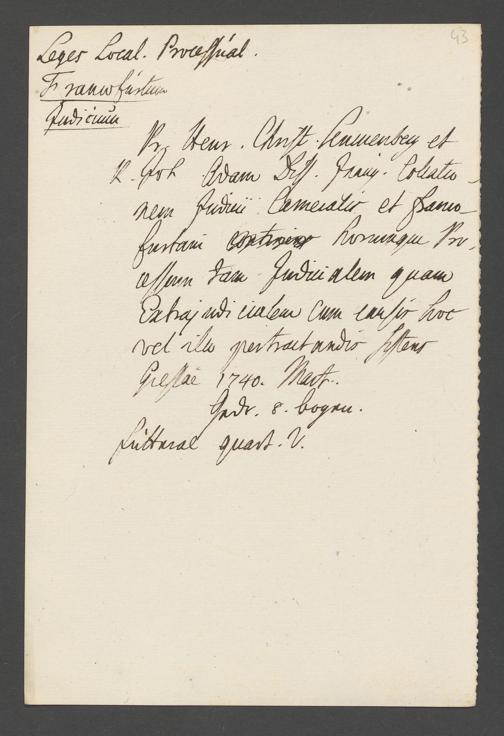 43
Leges Local. Processual.
Francofurtum
Judicium
Pr. Henr. Christ. Senckenberg et
R. Joh Adam Diss. Jnaug. Colsatio
nem Judicii Cameralis et Franco-
furtani horumque Pro
cessum tam Judicialem quam
Extrajudicialem cum causis hoc
vel illo pertractandis sistens
Giessae 1740. Mart.
Gedr. 8. bogen.
quart. V.